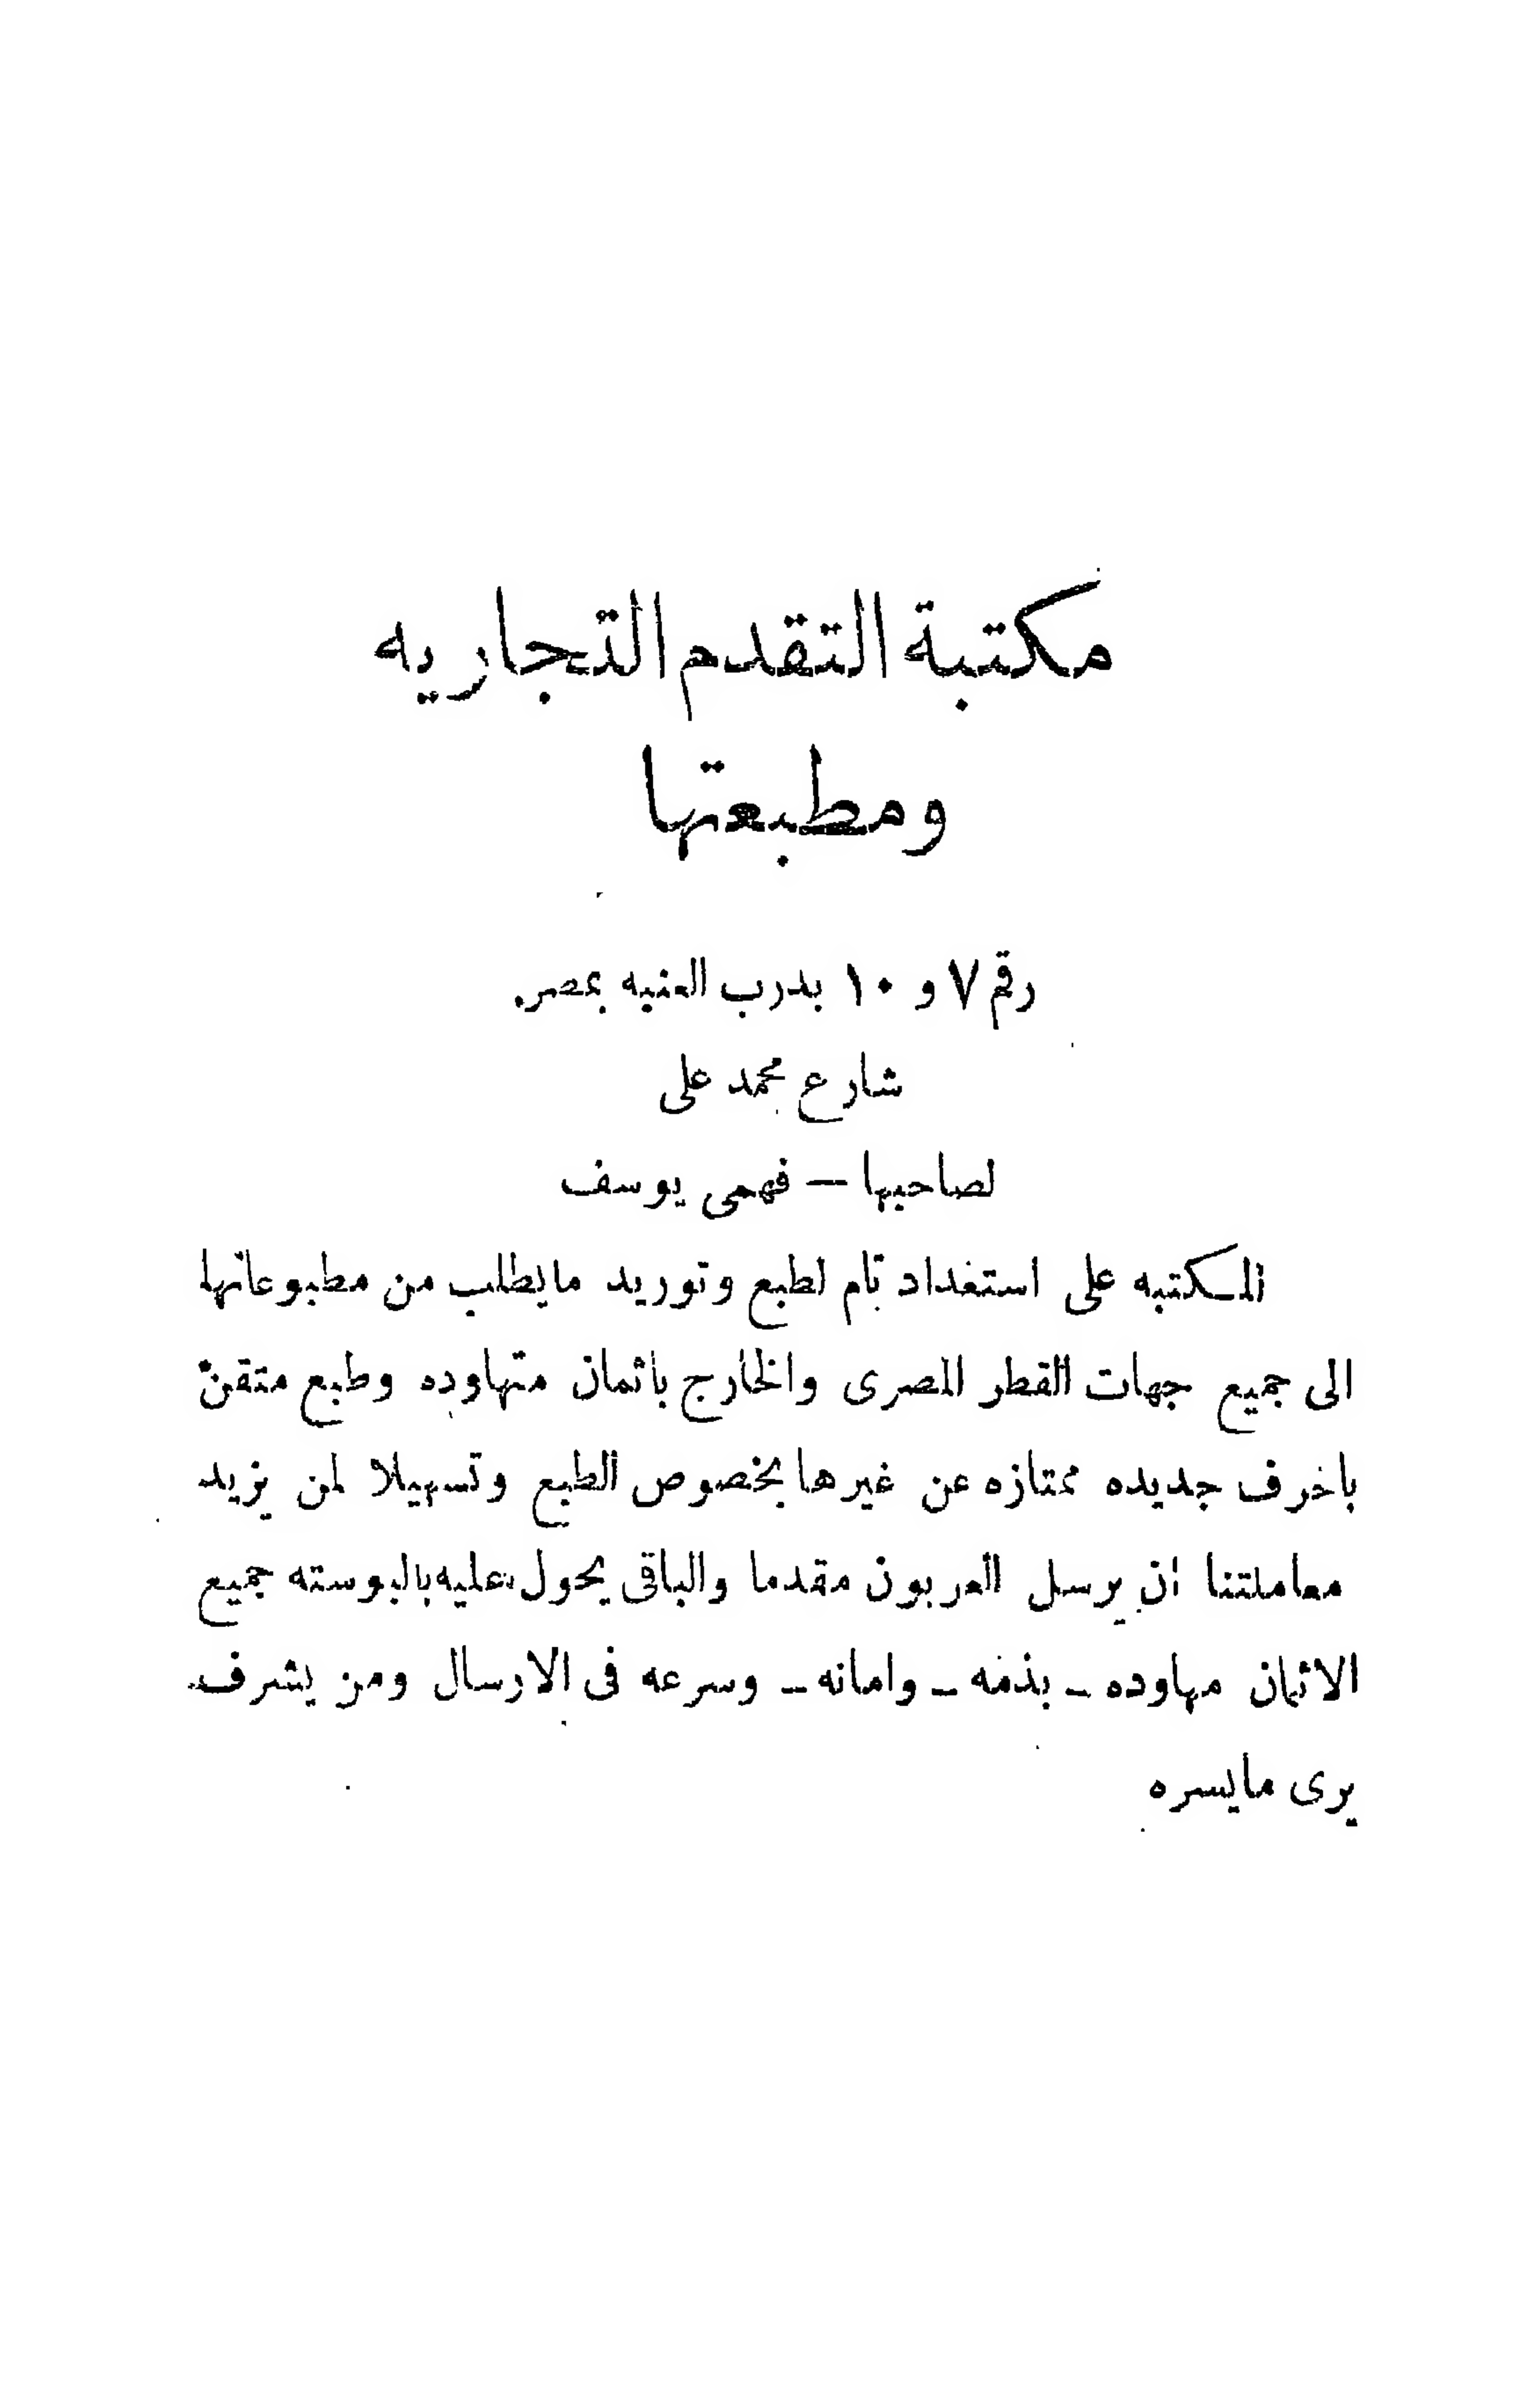 مكتبة التقدم التجاريه
ومطبعتها
رقم ٧ و ١٠ بدرب العنبه بمصر
شارع محمد على
لصاحبها — فهمى يوسف
المكتبه على استعداد تام لطبع وتوريد مايطلب من مطبوعاتها
الى جميع جهات القطر المصرى والخارج باثمان متهاوده وطبع متقن
باحرف جديده ممتازه عن غيرها بخصوص الطبع وتسهيلا لمن يريد
معاملتنا أن يرسل العربون مقدما والباقى يحول عليه بالبوسته جميع
الاثمان مهاوده ـ بذمه ـ وامانه ـ وسرعه فى الارسال ومن يشرف
يرى مايسره